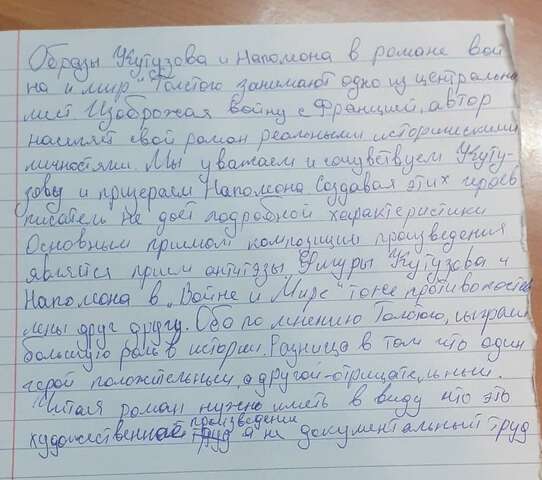 Образы Кутузова и Напомона в романе вой
на и мир" Толстого занимают одно из центральн
мест. Изображая войну с Францией, автор
населяет свой роман реальными историческими
личностями. Мы уважаем и сочувствуем Куту-
зову и призераем Напомона. Создавая этих героев
писатель не даёт подробной характеристики
Основным примом композиции произведения
является прием антитезы. Фигуры Кутузова и
Напомона в "Войне и Мире" тоже противопостав
лены друг другу. Оба по мнению Толстого, сыграли
большую роль в истории. Разница в том что один
герой положительный, а другой-отрицательный.
Читая роман нужно иметь в виду что это
художественное произведение а не документальный труд